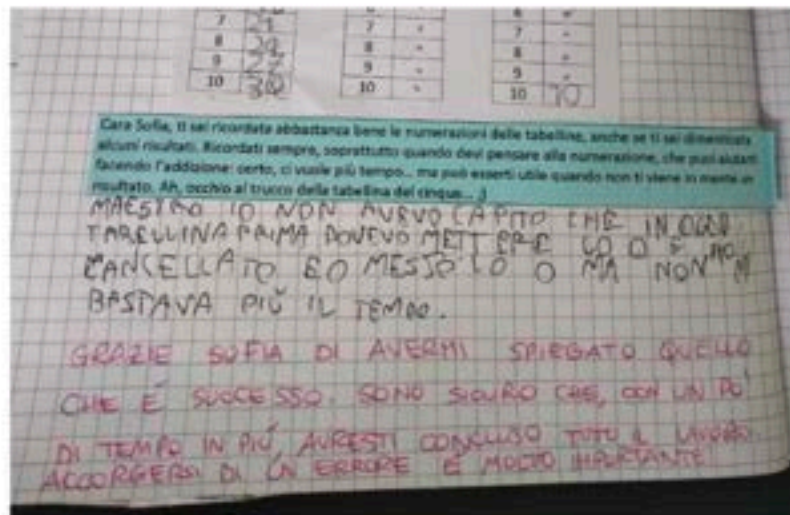 7 21 7 " 7 "
8 24 8 " 8 "
9 27 9 " 9 "
10 30 10 " 10 70
Cara Sofia, ti sei ricordata abbastanza bene le numerazioni delle tabelline, anche se ti sei dimenticata
alcuni risultati. Ricordati sempre, soprattutto quando devi pensare alla numerazione, che puoi aiutarti
facendo l'addizione: certo, ci vuole più tempo... ma può esserti utile quando non ti viene in mente un
risultato. Ah, occhio al trucco della tabellina del cinque... ;)
MAESTRO IO NON AVEVO CAPITO CHE IN OGNI
TABELLINA PRIMA DOVEVO METTERE LO 0 E HO
CANCELLATO E O MESSO LO 0 MA NON M
BASTAVA PIÙ IL TEMPO.
GRAZIE SOFIA DI AVERMI SPIEGATO QUELLO
CHE È SUCCESSO. SONO SICURO CHE, CON UN PO'
DI TEMPO IN PIÙ, AVRESTI CONCLUSO TUTTO IL LAVORO.
ACCORGERSI DI UN ERRORE È MOLTO IMPORTANTE!